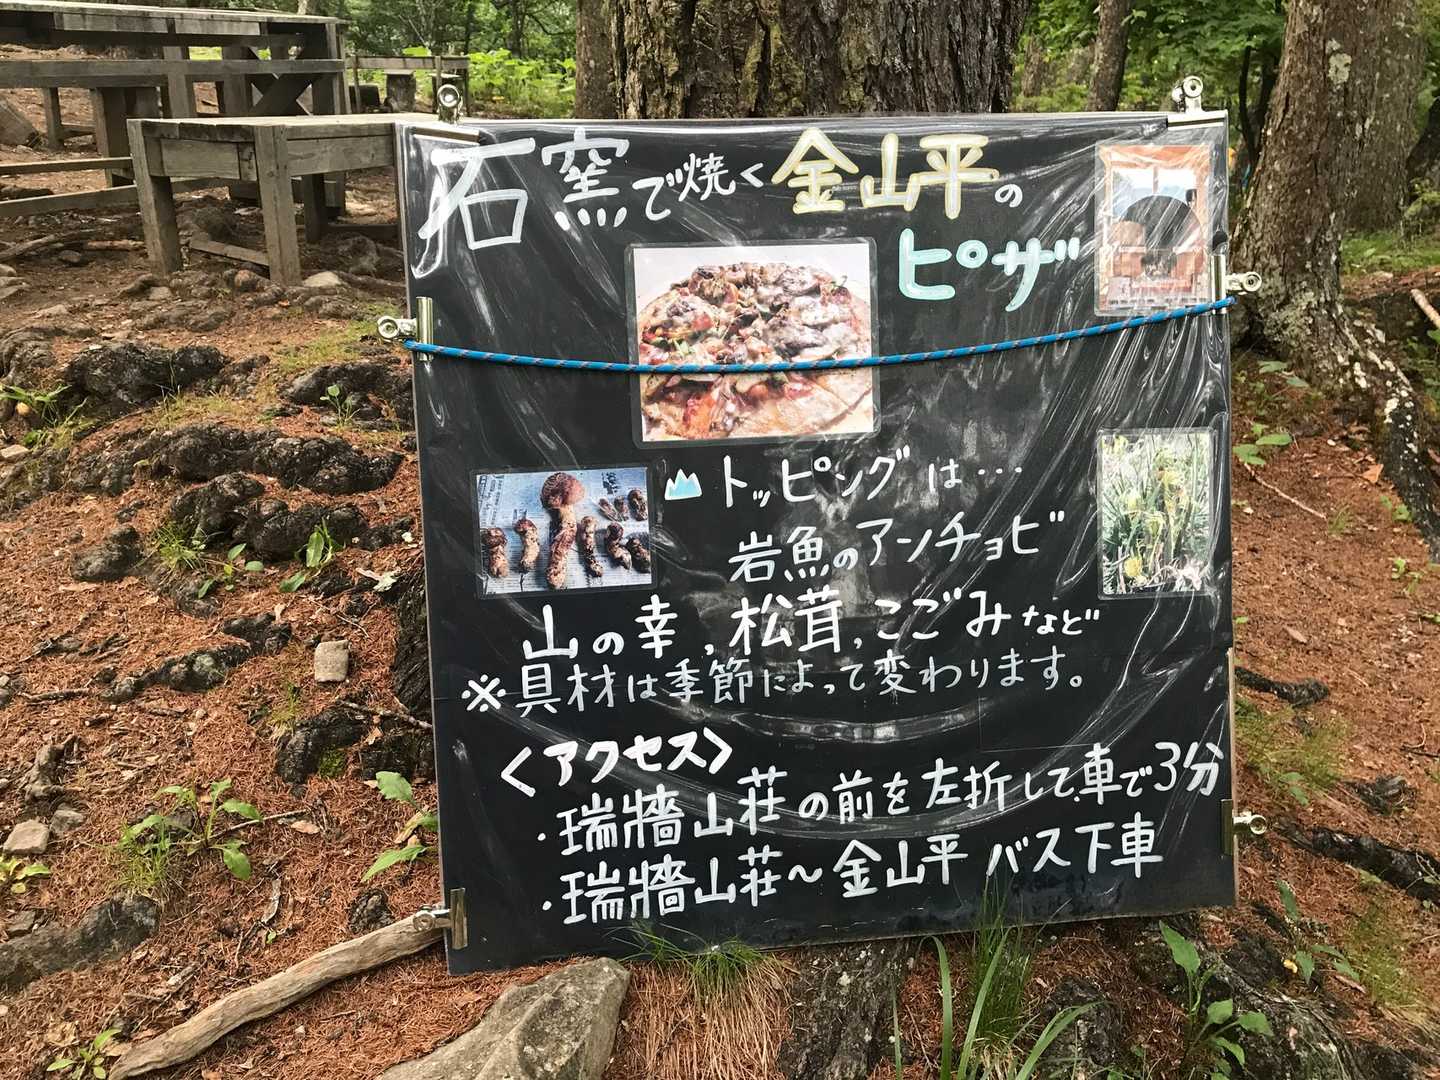 石窯で焼く金山平の
ピザ
トッピングは…
岩魚のアンチョビ
山の幸,松茸,こごみなど
※具材は季節によって変わります。
<アクセス>
・瑞牆山荘の前を左折して、車で3分
・瑞牆山荘〜金山平バス下車